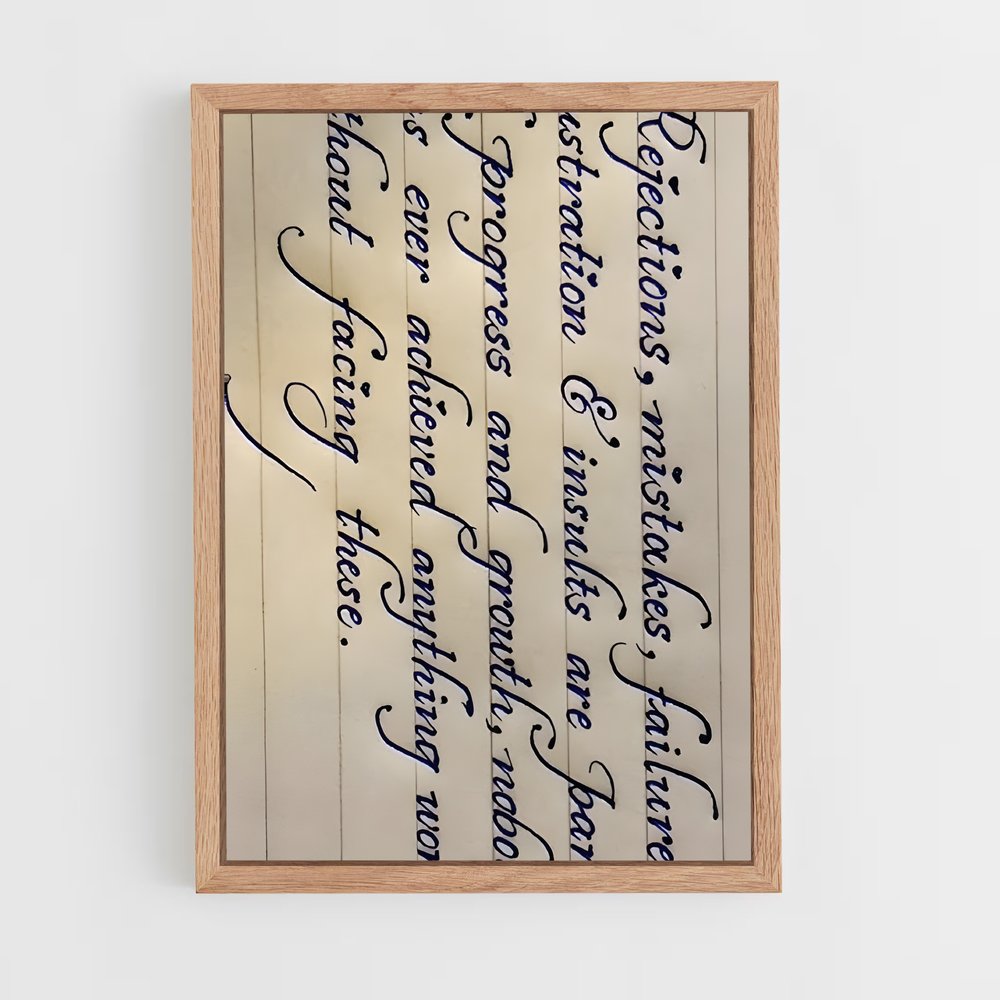 Rejections, mistakes, failure
ustration & insults are par
f progress and growth, nobo
s ever achieved anything wor
thout facing these.